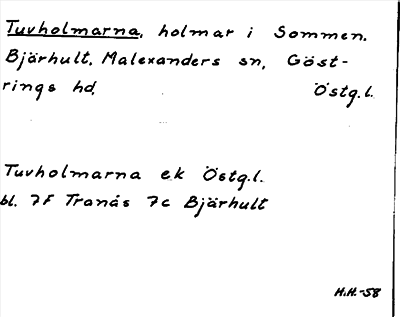 Tuvholmarna, holmar i Sommen.
Bjärhult, Malexanders sn, Göst-
rings hd, Östg.l.
Tuvholmarna ek Östg.l.
bl. 7F Tranås 7c Bjärhult
H.H.-58